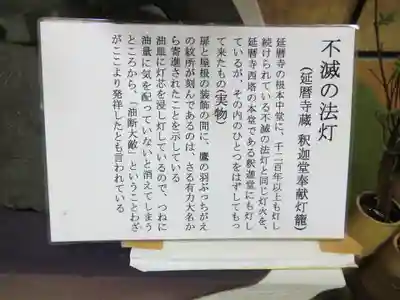 不滅の法灯
（延暦寺蔵 釈迦堂奉献灯籠）
延暦寺の根本中堂に、千二百年以上も灯し
続けられている不滅の法灯と同じ灯火を、
延暦寺西塔の本堂である釈迦堂にも灯し
ているが、その内のひとつをはずしてもっ
て来たもの（実物）
扉と屋根の装飾の間に、鷹の羽ぶっちがえ
の紋所が刻んであるのは、さる有力大名か
ら寄進されたことを示している
油皿に灯芯を浸し灯しているので、つねに
油量に気を配っていないと消えてしまう
ところから、「油断大敵」ということわざ
がここより発祥したとも言われている